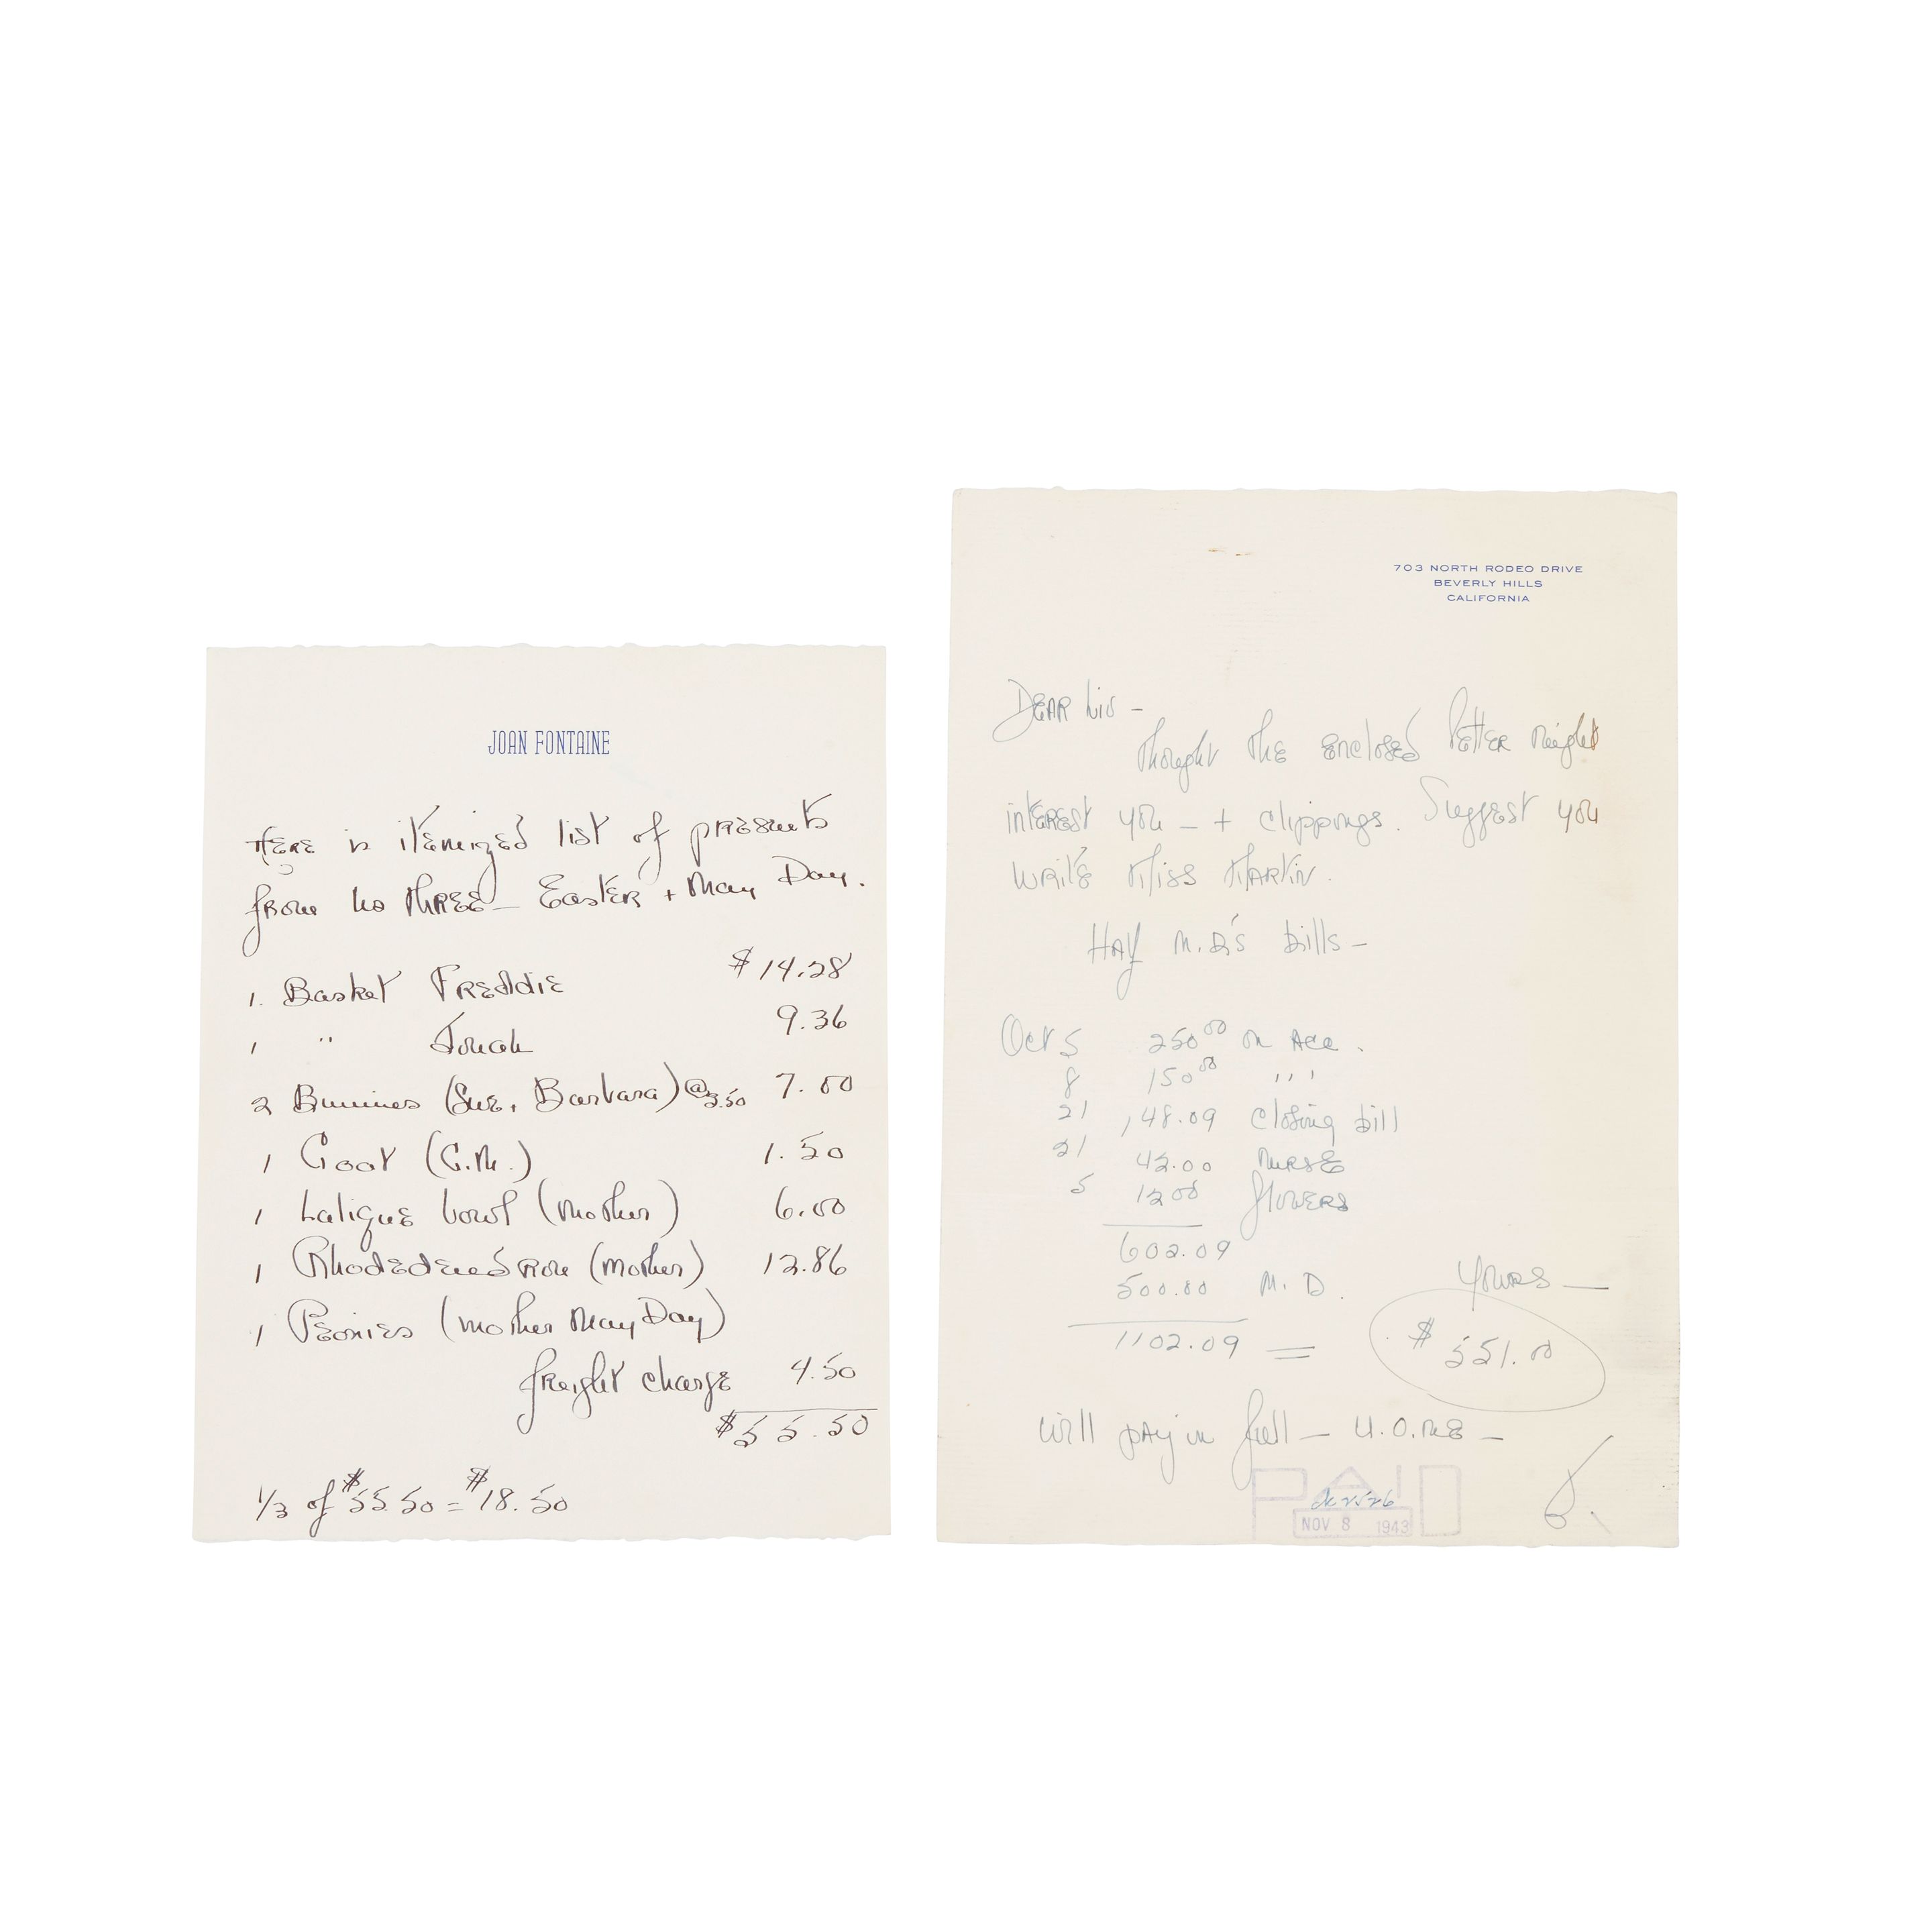 JOAN FONTAINE
Here is itemized list of presents
from us three — Easter + May Day.
1. Basket Freddie $14.28
1 " 9.36
2 Bunnies (Sue, Barbara) @ 3.50 7.00
1 Goat (G.M.) 1.50
1 Lalique bowl (Mother) 6.00
1 Rhodedendron (Mother) 12.86
1 Peonies (Mother May Day)
freight charge 4.50
$55.50
1/3 of $55.50 = $18.50
703 NORTH RODEO DRIVE
BEVERLY HILLS
CALIFORNIA
Dear Liv —
Thought the enclosed letter might
interest you — + clippings. Suggest you
write Miss Martin.
Half M.D's bills —
Oct 5 250.00 on Acc.
8 150.00 " "
21 148.09 Closing bill
21 42.00 Nurse
5 12.00 flowers
602.09
500.00 M.D.
1102.09 = $551.00
Yours —
Will pay in full — U.O.Me —
J.
PAID
NOV 8 1943